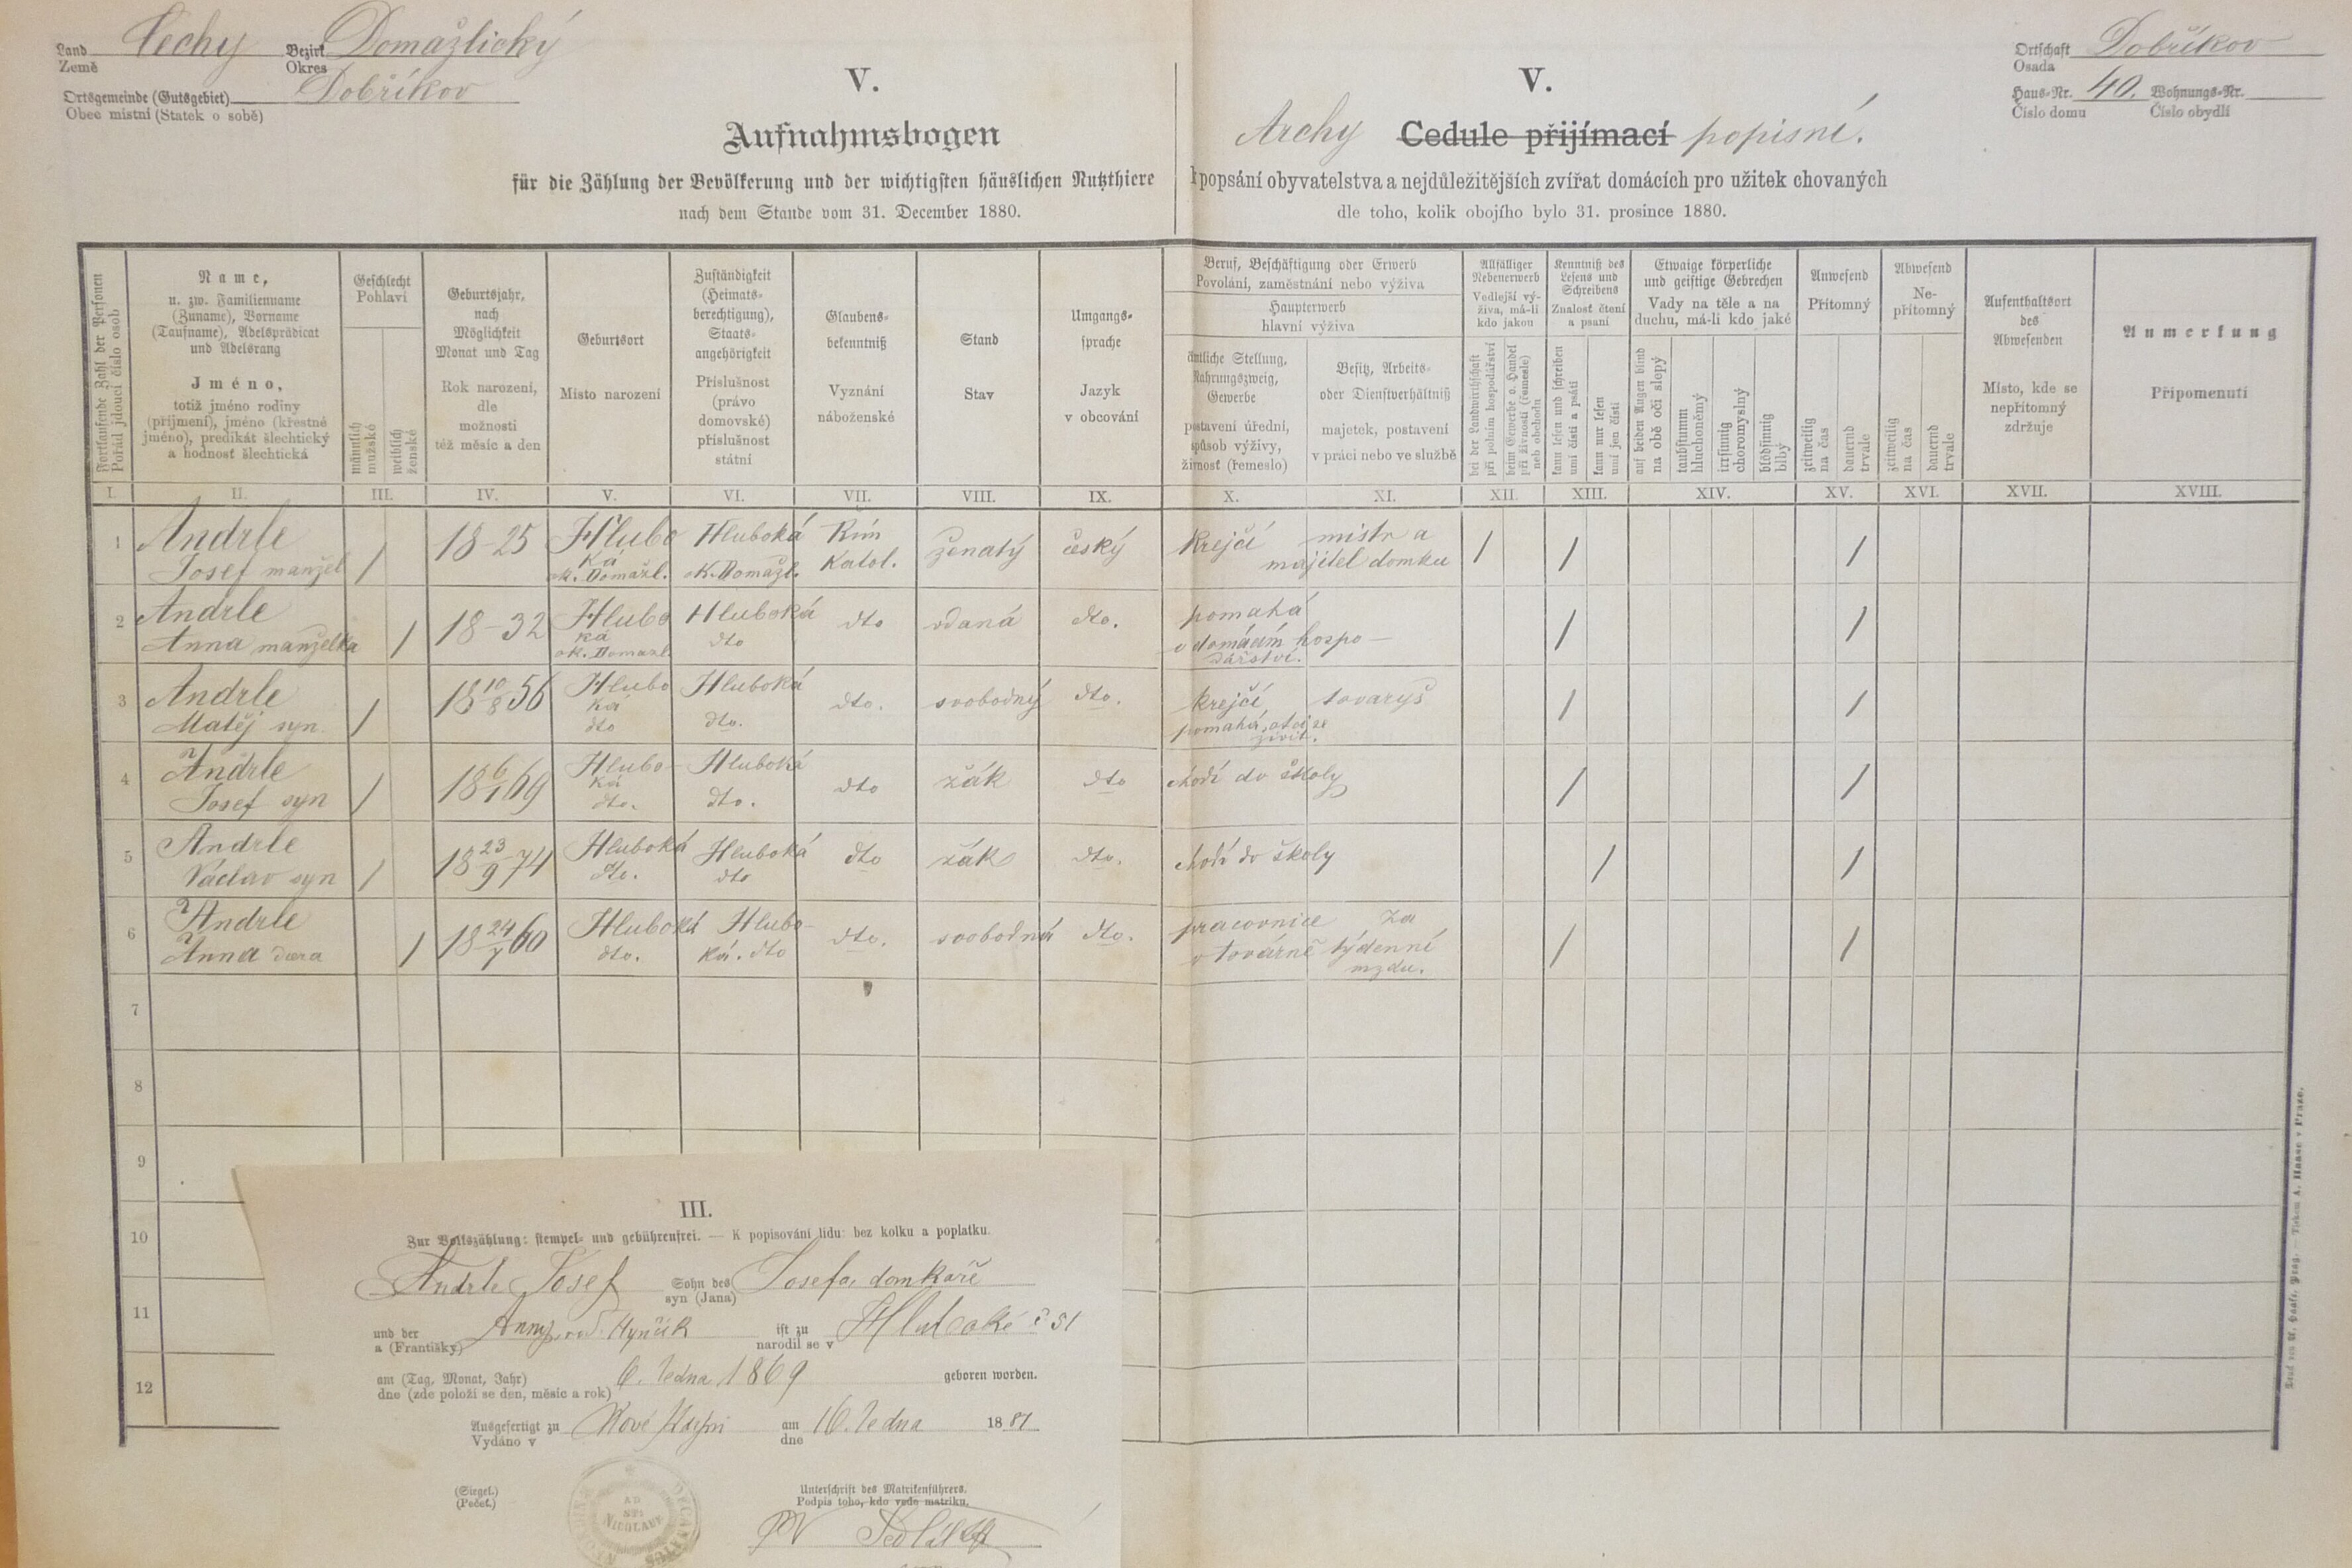 Land Čechy Bezirk Domažlický
Země Okres
Ortsgemeinde (Gutsgebiet) Dobříkov
Obec místní (Statek o sobě)
Ortschaft Dobříkov
Osada
Haus-Nr. 40. Wohnungs-Nr.
Číslo domu Číslo obydlí
V.
Aufnahmsbogen
für die Zählung der Bevölkerung und der wichtigsten häuslichen Nutzthiere
nach dem Stande vom 31. December 1880.
V.
Archy Cedule přijímací popisní.
k popsání obyvatelstva a nejdůležitějších zvířat domácích pro užitek chovaných
dle toho, kolik obojího bylo 31. prosince 1880.
Fortlaufende Zahl der Personen
Pořád jdoucí číslo osob
Name,
u. zw. Familienname
(Zuname), Vorname
(Taufname), Adelsprädicat
und Adelsrang
Jméno,
totiž jméno rodiny
(příjmení), jméno (křestné
jméno), predikát šlechtický
a hodnosť šlechtická
Geschlecht
Pohlaví
männlich
mužské
weiblich
ženské
Geburtsjahr,
nach
Möglichkeit
Monat und Tag
Rok narození,
dle
možnosti
též měsíc a den
Geburtsort
Místo narození
Zuständigkeit
(Heimats-
berechtigung),
Staats-
angehörigkeit
Příslušnost
(právo
domovské)
příslušnost
státní
Glaubens-
bekenntniß
Vyznání
náboženské
Stand
Stav
Umgangs-
sprache
Jazyk
v obcování
Beruf, Beschäftigung oder Erwerb
Povolání, zaměstnání nebo výživa
Haupterwerb
hlavní výživa
ämtliche Stellung,
Nahrungszweig,
Gewerbe
postavení úřední,
způsob výživy,
živnosť (řemeslo)
Besitz, Arbeits-
oder Dienstverhältniß
majetek, postavení
v práci nebo ve službě
Allfälliger
Nebenerwerb
Vedlejší vý-
živa, má-li
kdo jakou
bei der Landwirthschaft
při polním hospodářství
beim Gewerbe o. Handel
při živnosti (řemesle)
neb obchodu
Kenntniß des
Lesens und
Schreibens
Znalosť čtení
a psaní
kann lesen und schreiben
umí čísti a psáti
kann nur lesen
umí jen čísti
Etwaige körperliche
und geistige Gebrechen
Vady na těle a na
duchu, má-li kdo jaké
auf beiden Augen blind
na obě oči slepý
taubstumm
hluchoněmý
irrsinnig
choromyslný
blödsinnig
blbý
Anwesend
Přítomný
zeitweilig
na čas
dauernd
trvale
Abwesend
Ne-
přítomný
zeitweilig
na čas
dauernd
trvale
Aufenthaltsort
des
Abwesenden
Místo, kde se
nepřítomný
zdržuje
Anmerkung
Připomenutí
I. II. III. IV. V. VI. VII. VIII. IX. X. XI. XII. XIII. XIV. XV. XVI. XVII. XVIII.
1 Andrle 18-25 Hlubo Hluboká Řím ženatý český krejčí mistr a
Josef manžel / ká ok. Domažl. ok. Domažl. Katol. majitel domku / / /
2 Andrle 18-32 Hlubo Hluboká dto vdaná dto. pomahá
Anna manželka / ká ok. Domažl. dto v domácím hospo-
dářství. / /
3 Andrle 18 10/8 56 Hlubo Hluboká dto. svobodný dto. krejčí, tovaryš
Matěj syn / ká dto dto. pomahá otci se
živit. / /
4 Andrle 18 6/1 69 Hlubo- Hluboká dto žák dto chodí do školy
Josef syn / ká dto. dto. / /
5 Andrle 18 23/9 74 Hluboká Hluboká dto žák dto. chodí do školy
Václav syn / dto. dto / /
6 Andrle 18 24/7 60 Hluboká Hlubo- dto. svobodná dto. pracovnice za
Anna dcera / dto. ká. dto v továrně týdenní
mzdu. / /
7
8
9
10
11
12
III.
Zur Volkszählung: stempel- und gebührenfrei. — K popisování lidu: bez kolku a poplatku.
Andrle Josef Sohn des Josefa, domkaře
syn (Jana)
und der Anny, roz. ist zu Hluboké č 51
a (Františky) narodil se v
am (Tag, Monat, Jahr) 6. ledna 1869 geboren worden.
dne (zde položí se den, měsíc a rok)
Ausgefertigt zu Nové am 16. ledna 1881
Vydáno v dne
(Siegel.) Unterschrift des Matrikenführers.
(Pečeť.) Podpis toho, kdo vede matriku.
AD
NICOLAUM
Druck von A. Haase, Prag. — Tiskem A. Haase v Praze.